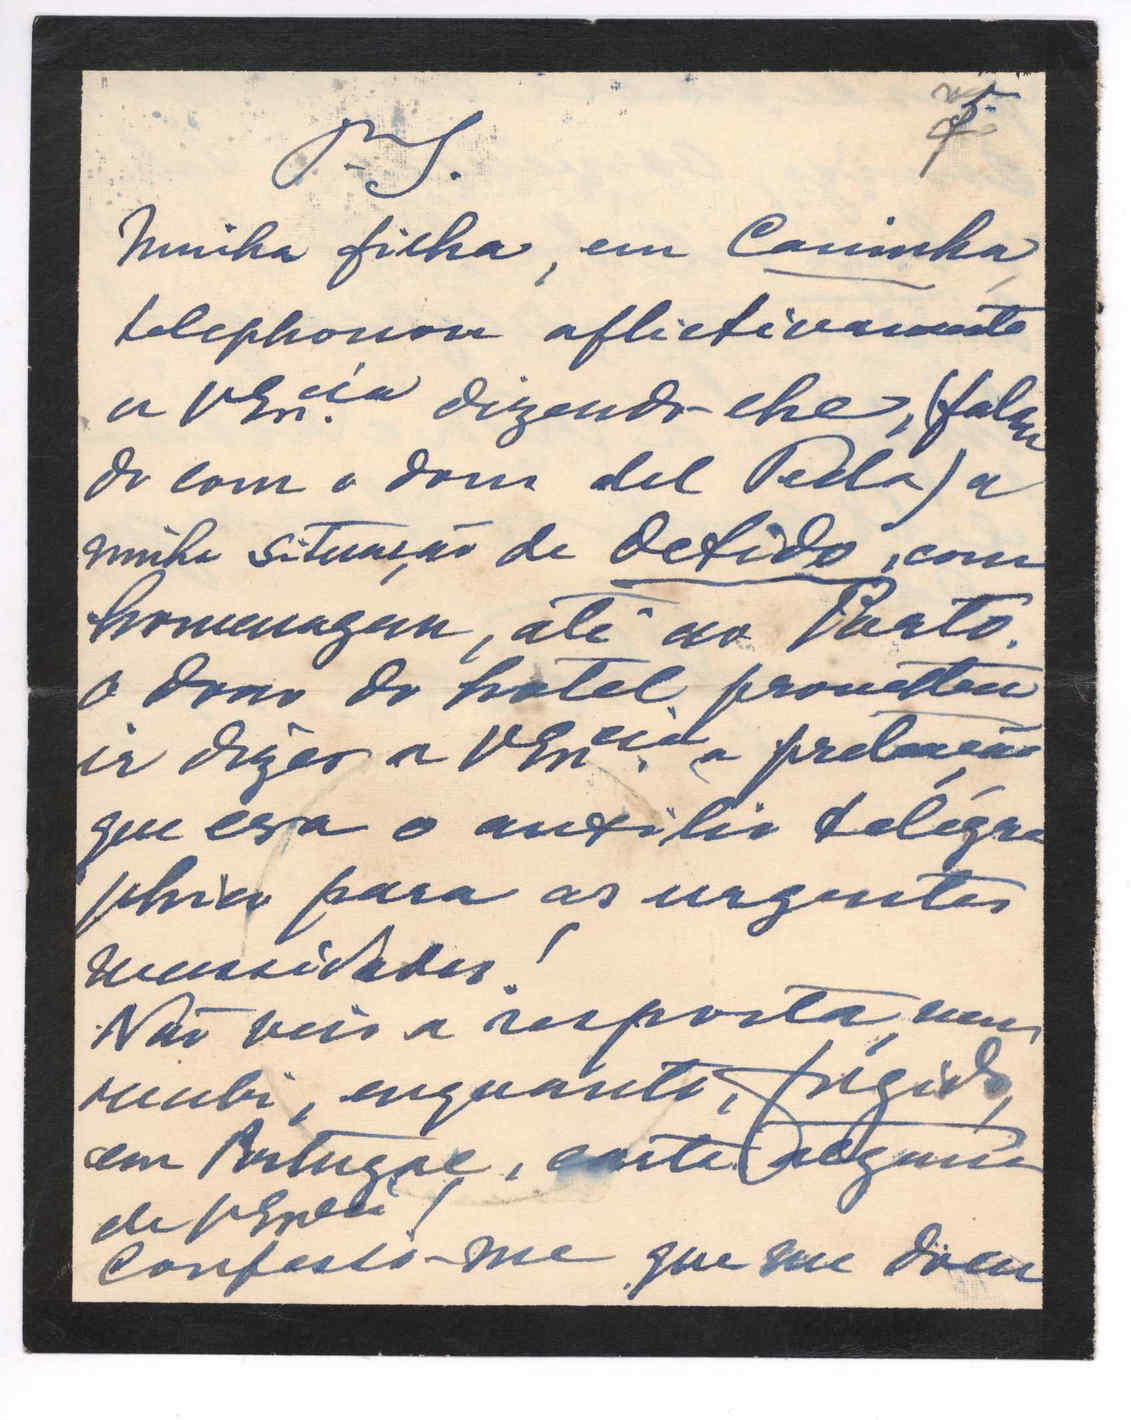 P.S.
Minha filha, em Caminha,
telephonou aflictivamente
a V Exª. cia dizendo-lhe, (falan
do com o dono del Peda) a
minha situação de detido, com
homenagem, até ao Porto.
o dono do hotel prometteu
ir dizer a V Ex. cia a pretenção
que era o auxilio telégra
phico para as urgentes
necessidades!
Não veio a resposta, nem
recebi, enquanto, fugido,
em Portugal, carta alguma
de V Excia!
Confesso-me que me doeu